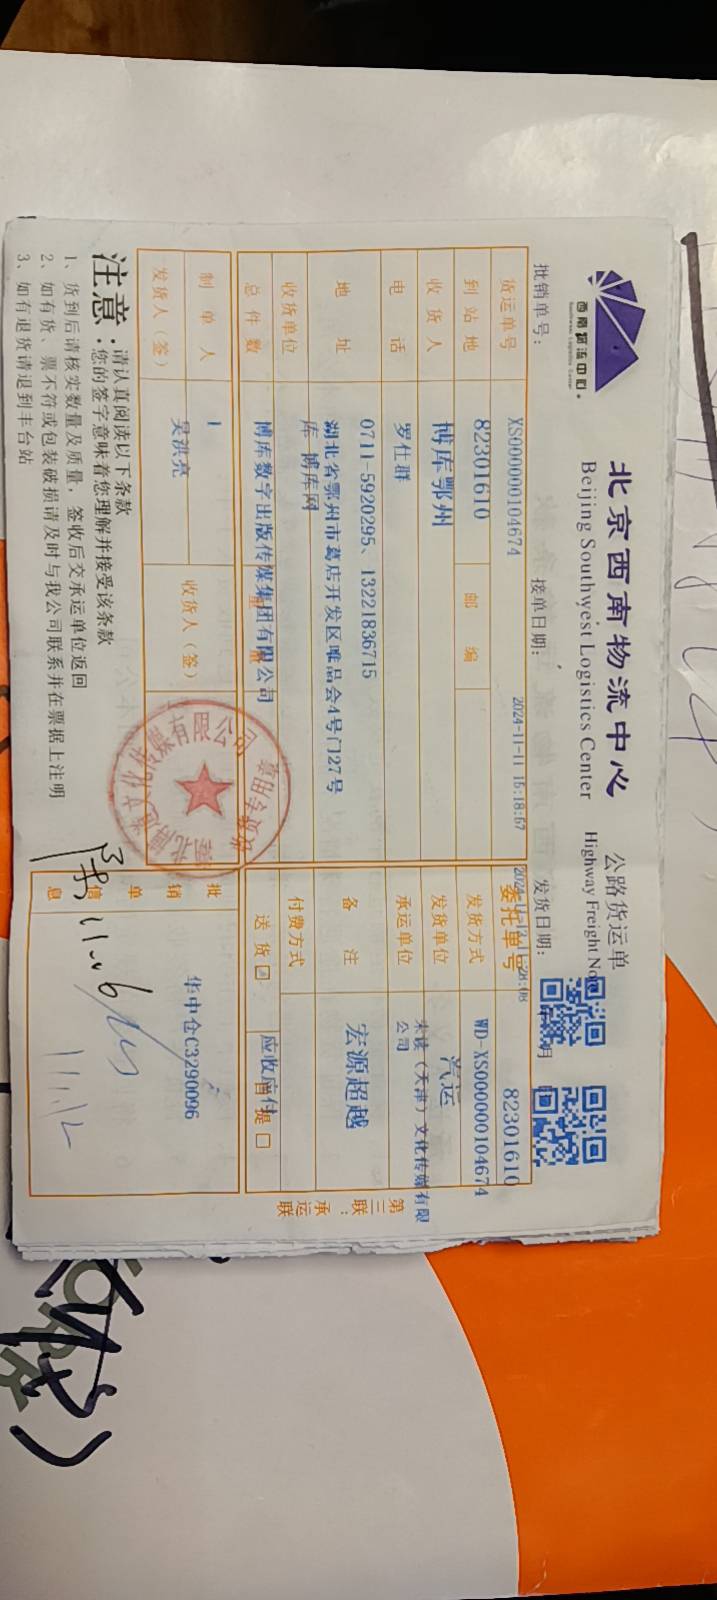 西南物流中心
Southwest Logistics Center
北京西南物流中心
公路货运单
Beijing Southwest Logistics Center
Highway Freight Note
批销单号：
接单日期： 2024-11-11 15:18:57
发货日期：
货运单号 XS000000104674
委托单号 82301610
到站地 82301610
邮编
发货方式 WD-XS000000104674
收货人 博库鄂州
发货单位 汽运
电话 罗仕群
承运单位 未读（天津）文化传媒有限公司
地址 0711-5920295、13221836715
湖北省鄂州市葛店开发区唯品会4号门27号
库 博库网
备注 宏源超越
收货单位
付费方式
总件数 博库数字出版传媒集团有限公司
送货
应收应付
自提
制单人 1
收货人（签）
发货人（签） 吴洪亮
批销单信息
华中仓C3290096
第三联：承运联
注意：
请认真阅读以下条款
您的签字意味着您理解并接受该条款
1、货到后请核实数量及质量，签收后交承运单位返回
2、如有货、票不符或包装破损请及时与我公司联系并在票据上注明
3、如有退货请退到丰台站
11.12